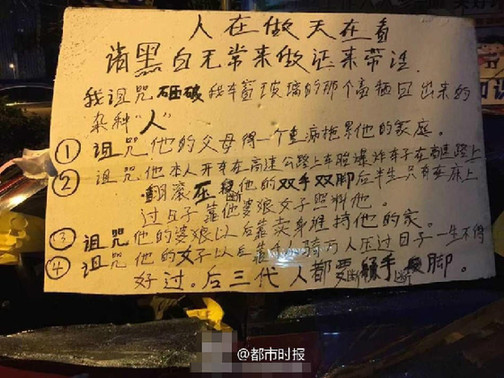 人在做天在看
请黑白无常来做证来带法
我诅咒砸破我车窗玻璃的那个畜牲日出来的
杂种"人"
① 诅咒他的父母得一个重病拖累他的家庭。
② 诅咒他本人开车在高速公路上车胎爆炸车子在高速路上
翻滚压断他的双手双脚后半生只有在床上
过日子靠他婆娘女子照料他。
③ 诅咒他的婆娘以后靠卖身维持他的家。
④ 诅咒他的女子以后靠 骑万人压过日子一生不得
好过。后三代人都要断手断脚。
@都市时报